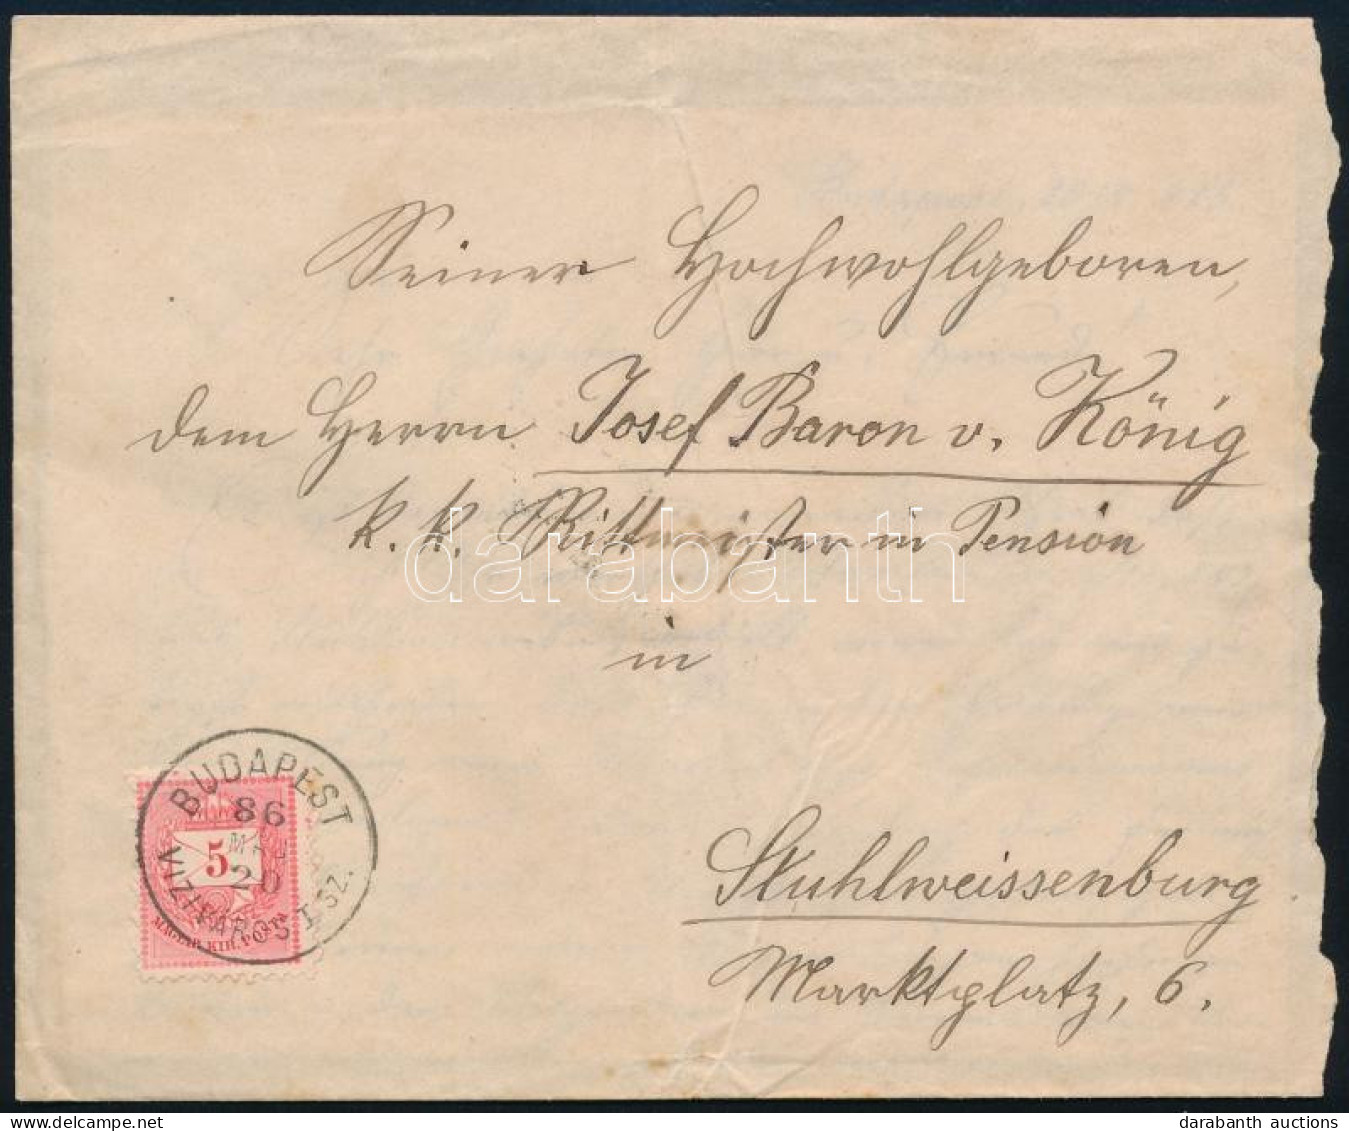 Seiner Hochwohlgeboren,
dem Herrn Josef Baron v. König
k. k. Rittmeister in Pension
in
darabanth
BUDAPEST
86
20
VIZIVÁROS I. SZ.
5
MAGYAR KIR. POSTA
Stuhlweissenburg
Marktplatz, 6.
darabanth auctions